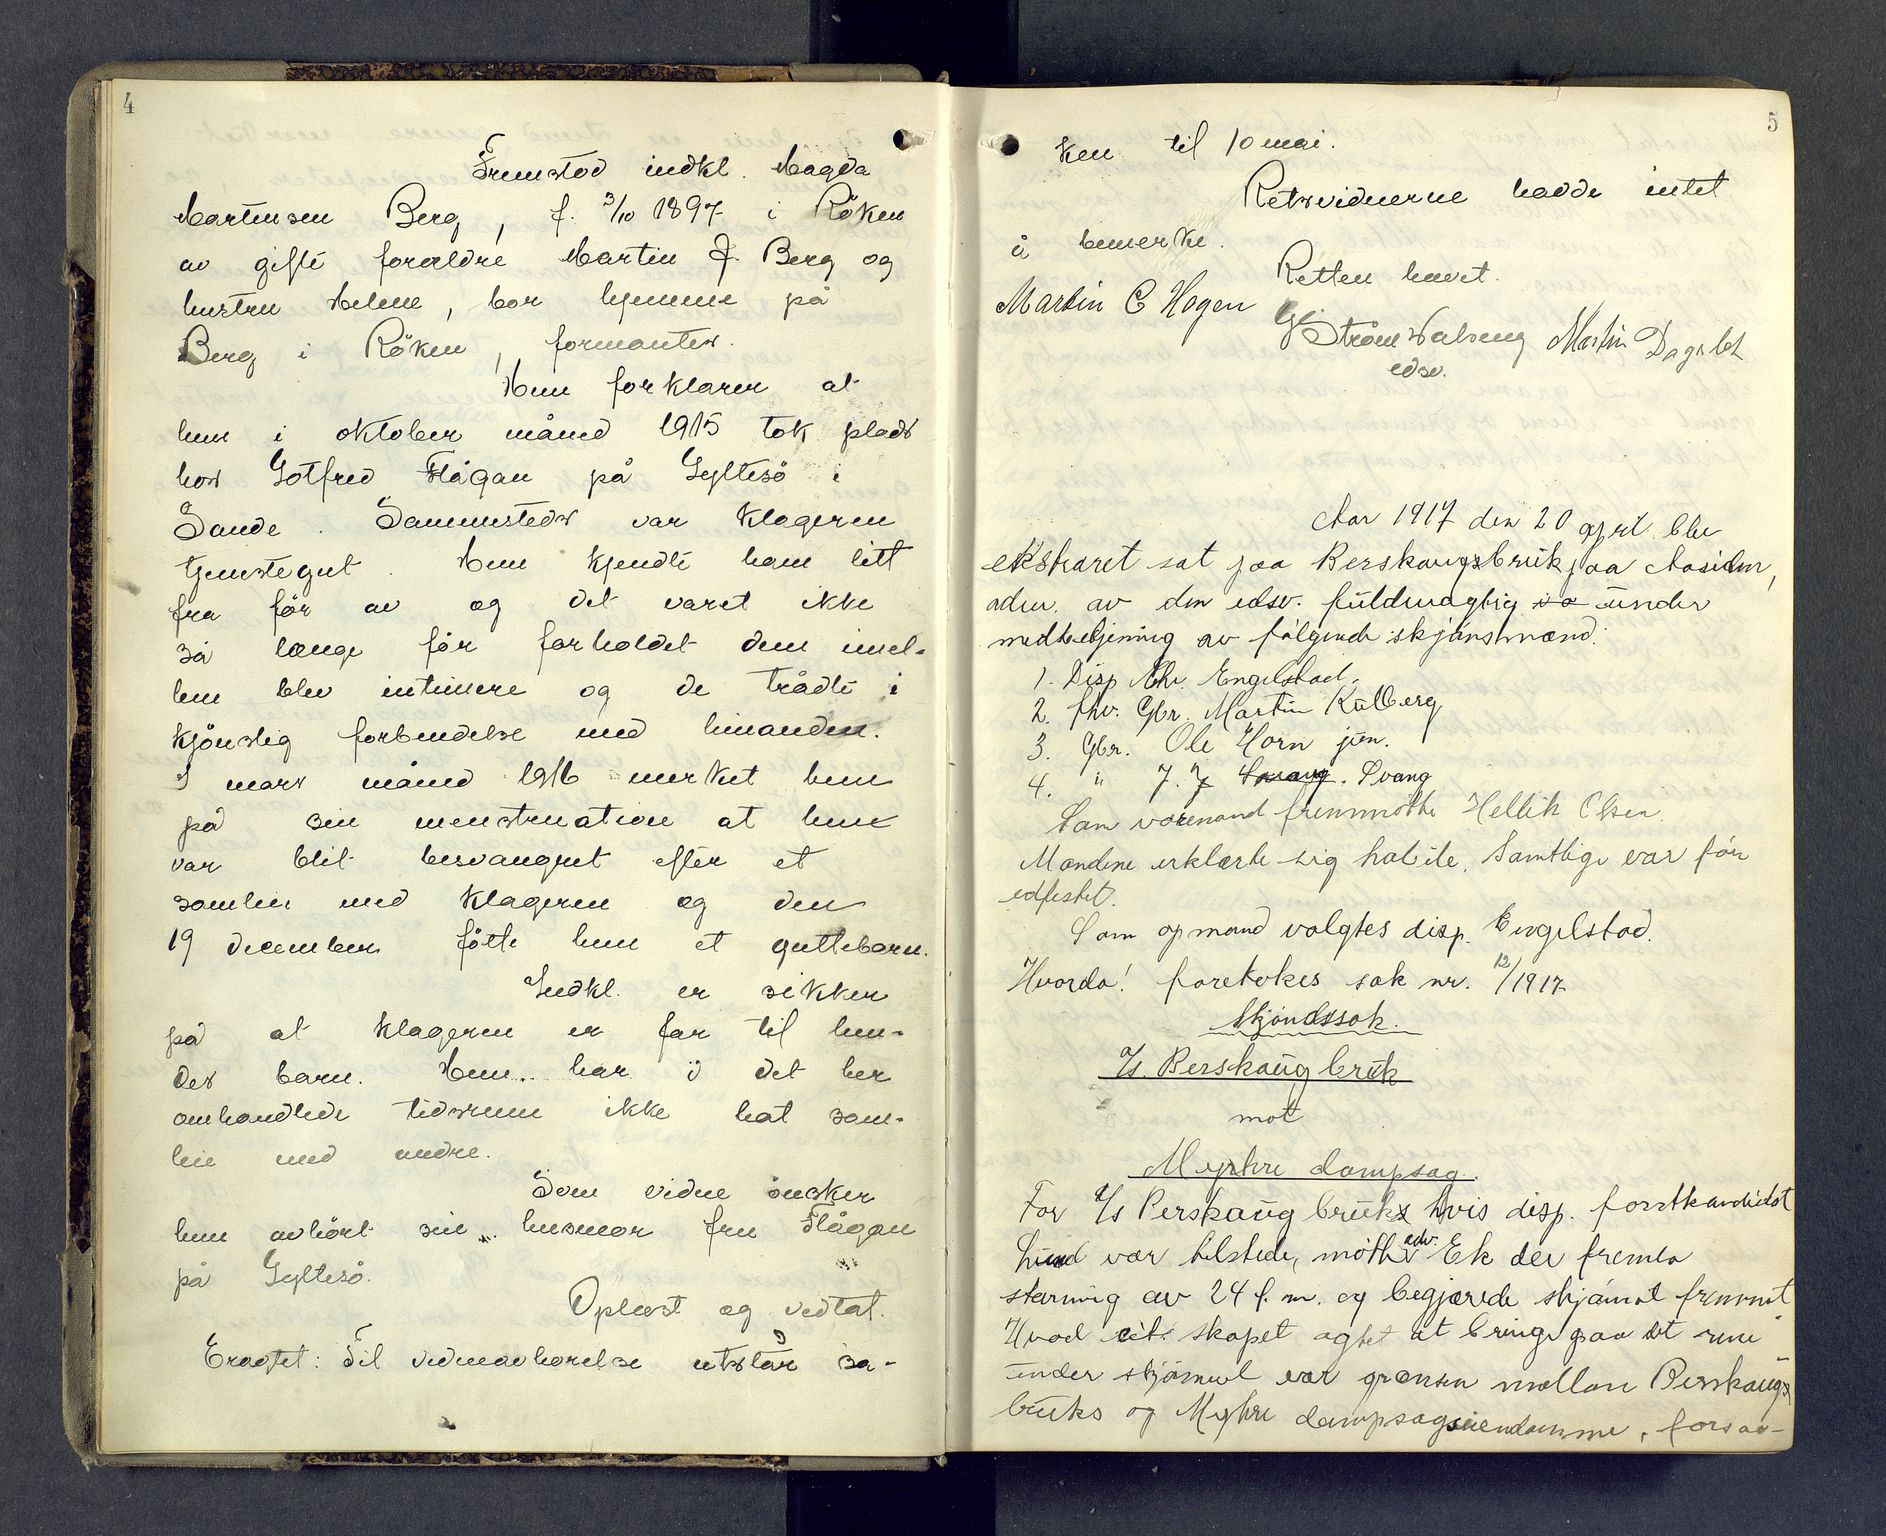 4
Fremstod indkl. Magda
Martinsen Berg, f. 3/10 1897 i Röken
av gifte forældre Martin J. Berg og
hustru Helene, bor hjemme på
Berg i Röken, formantes.
Hun forklarer at
hun i oktober måned 1915 tok plads
hos Gotfred Flågan på Gyltesö i
Sande. Sammesteds var klageren
tjenstegut. Hun kjendte ham litt
fra för av og det varet ikke
så længe för forholdet dem imel-
lem blev intimere og de trådte i
kjönslig forbindelse med hinanden.
I mars måned 1916 merket hun
på sin menstruation at hun
var blit besvangret efter et
samleie med klageren og den
19 december fötte hun et guttebarn.
Indkl. er sikker
på at klageren er far til hen-
des barn. Hun har i det her
omhandlede tidsrum ikke hat sam-
leie med andre.
Som vidne önsker
hun avhört sin husmor fru Flågan
på Gyltesö.
Oplæst og vedtat.
Eragtet: Til vidneavhörelse utstår sa-
5
ken til 10 mai.
Retsvidnerne hadde intet
å bemerke.
Retten hævet.
Martin C Hagen
G Ström Walseng Martin Dagslet
edsv.
Aar 1917 den 20 april blev
ekstraret sat paa Berskaugsbruk paa Aasiden,
adm. av den edsv. fuldmægtig so under
medbetjening av fölgende skjönsmænd:
1. Disp Chr. Engelstad.
2. fhv. Gbr. Martin Kulberg
3. Gbr. Ole Horn jun.
4. " J. J. Svang. Svang
Som varemand fremmötte Hellik Olsen.
Mændene erklærte sig habile. Samtlige var för
edfestet.
Som opmand valgtes disp. Engelstad.
Hvorda! foretokes sak nr. 12/1917
Skjönssak.
A/s. Berskaug bruk
mot
Myhre dampsag.
For A/s Berskaug bruks hvis disp. forstkandidat
Lund var tilstede, mötte adv. Ek der fremla
stevning av 24 f. m. og begjærede skjönnet fremmet
Hvad selskapet agtet at bringe paa det rene
under skjönnet var grænsen mellem Berskaugs
bruks og Myhre dampsagseiendomme, forsaa-